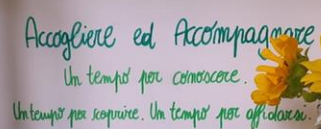 Accogliere ed Accompagnare
Un tempo per conoscere.
Un tempo per scoprire. Un tempo per affidarsi.